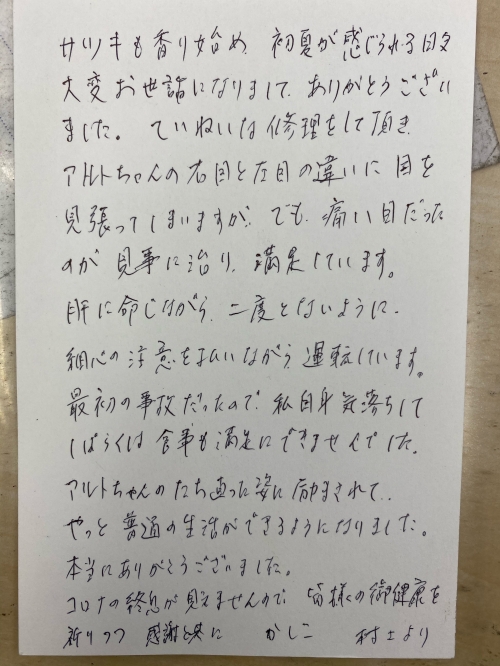 サツキも香り始め、初夏が感じられる日々
大変お世話になりまして、ありがとうござい
ました。ていねいな修理をして頂き、
アルトちゃんの右目と左目の違いに目を
見張ってしまいますが、でも、痛い目だった
のが見事に治り、満足しています。
肝に命じながら、二度とないように、
細心の注意を払いながら、運転しています。
最初の事故だったので、私自身気落ちして
しばらくは食事も満足にできませんでした。
アルトちゃんのたち直った姿に励まされて、
やっと普通の生活ができるようになりました。
本当にありがとうございました。
コロナの終息が見えませんので、皆様の御健康を
祈りつつ 感謝と共に かしこ 村上より